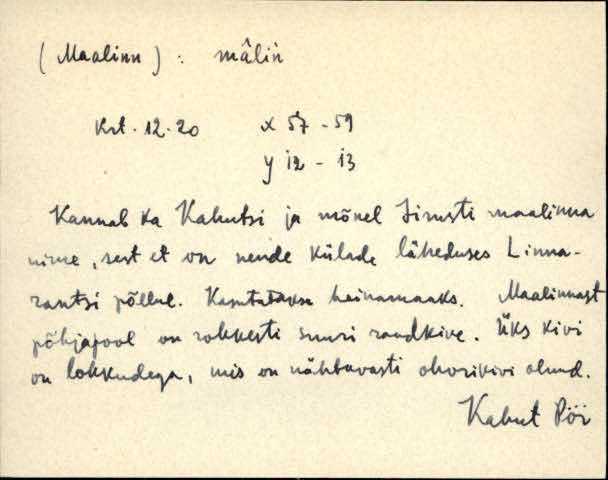 (Maalinn) : mâlin̄
Krt. 12-20 x 57 - 59
y 12 - 13
Kannab ka Kahutsi ja mõnel Iirusti maalinna
nime, sest et on nende külade läheduses Linna-
rantsi põllul. Kasutatakse heinamaaks. Maalinnast
põhjapool on rohkesti suuri raudkive. Üks kivi
on lohkudega, mis on nähtavasti ohvrikivi olnud.
Kahut Pöi